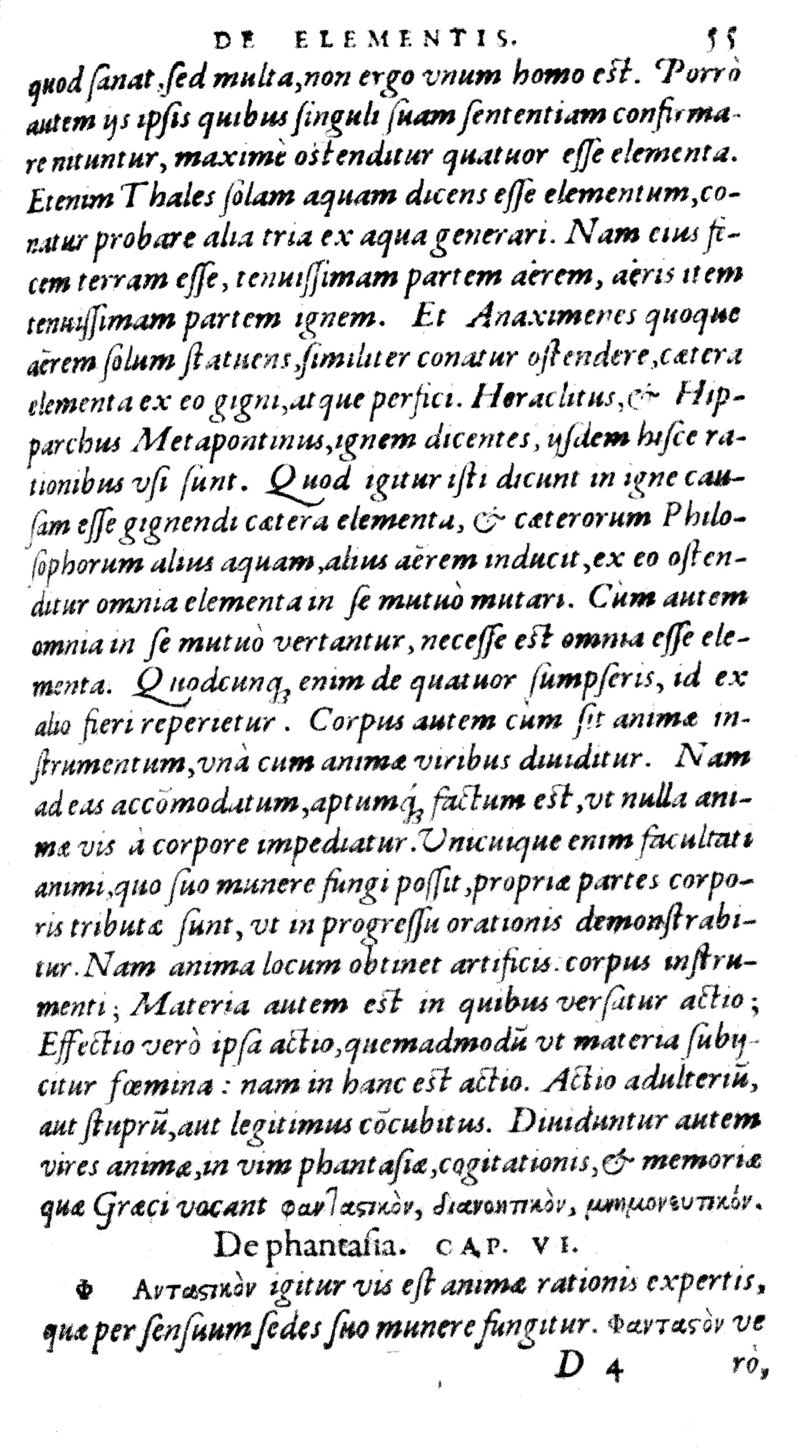 DE ELEMENTIS. 55
quod ſanat, ſed multa, non ergo vnum homo eſt. Porrò
autem ijs ipſis quibus ſinguli ſuam ſententiam confirma-
re nituntur, maximè oſtenditur quatuor eſſe elementa.
Etenim Thales ſolam aquam dicens eſſe elementum, co-
natur probare alia tria ex aqua generari. Nam eius fę-
cem terram eſſe, tenuiſſimam partem aërem, aëris item
tenuiſſimam partem ignem. Et Anaximenes quoque
aërem ſolum ſtatuens, ſimiliter conatur oſtendere, cætera
elementa ex eo gigni, atque perfici. Heraclitus, & Hip-
parchus Metapontinus, ignem dicentes, ijſdem hiſce ra-
tionibus vſi ſunt. Quod igitur iſti dicunt in igne cau-
ſam eſſe gignendi cætera elementa, & cæterorum Philo-
ſophorum alius aquam, alius aërem inducit, ex eo oſten-
ditur omnia elementa in ſe mutuò mutari. Cùm autem
omnia in ſe mutuò vertantur, neceſſe eſt omnia eſſe ele-
menta. Quodcunq; enim de quatuor ſumpſeris, id ex
alio fieri reperietur. Corpus autem cùm ſit animæ in-
ſtrumentum, vnà cum animæ viribus diuiditur. Nam
ad eas accõmodatum, aptumq́; factum eſt, vt nulla ani-
mæ vis à corpore impediatur. Vnicuique enim facultati
animi, quo ſuo munere fungi poſſit, propriæ partes corpo-
ris tributæ ſunt, vt in progreſſu orationis demonſtrabi-
tur. Nam anima locum obtinet artificis. corpus inſtru-
menti; Materia autem eſt in quibus verſatur actio;
Effectio verò ipſa actio, quemadmodũ vt materia ſubij-
citur fœmina: nam in hanc eſt actio. Actio adulteriũ,
aut ſtuprũ, aut legitimus cõcubitus. Diuiduntur autem
vires animæ, in vim phantaſiæ, cogitationis, & memoriæ
quæ Græci vocant φανταϛικὸν, διανοητικὸν, μνημονευτικόν.
De phantaſia. CAP. VI.
Φ Ανταϛικὸν igitur vis eſt animæ rationis expertis,
quæ per ſenſuum ſedes ſuo munere fungitur. Φανταϛὸν ve
D 4 rò,